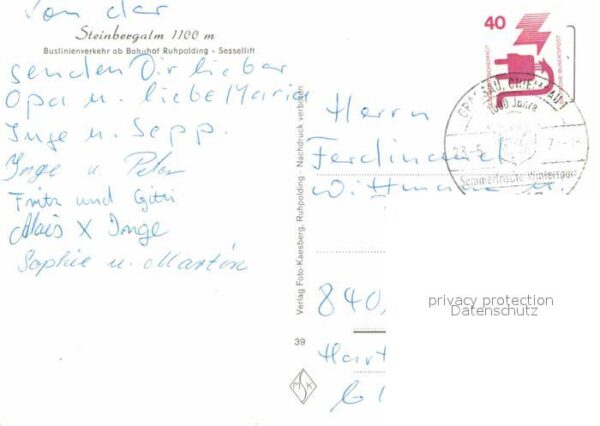 Von der
Steinbergalm 1100 m
Buslinienverkehr ab Bahnhof Ruhpolding - Sessellift
senden Dir lieber
Opa u. liebe Maria
Inge u. Sepp.
Inge u. Peter
Fritz und Gitti
Alois X Inge
Sophie u. Martin
Verlag Foto-Kaesberg, Ruhpolding - Nachdruck verboten
39
40
DEUTSCHE BUNDESPOST
1000 Jahre
23.-5.
Sommerfrische Wintersport
Herrn
Ferdinand
Wittmann u.
840
privacy protection
Datenschutz
Hart